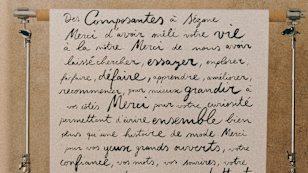 Des Composantes à Sézane
Merci d'avoir mêlé votre vie
à la nôtre Merci de nous avoir
laissé chercher, essayer, explorer,
faire, défaire, apprendre, améliorer,
recommencer, pour mieux grandir à
vos côtés Merci pour votre curiosité
permettant d'écrire ensemble bien
plus qu'une histoire de mode Merci
pour vos yeux grands ouverts, votre
confiance, vos mots, vos sourires, votre